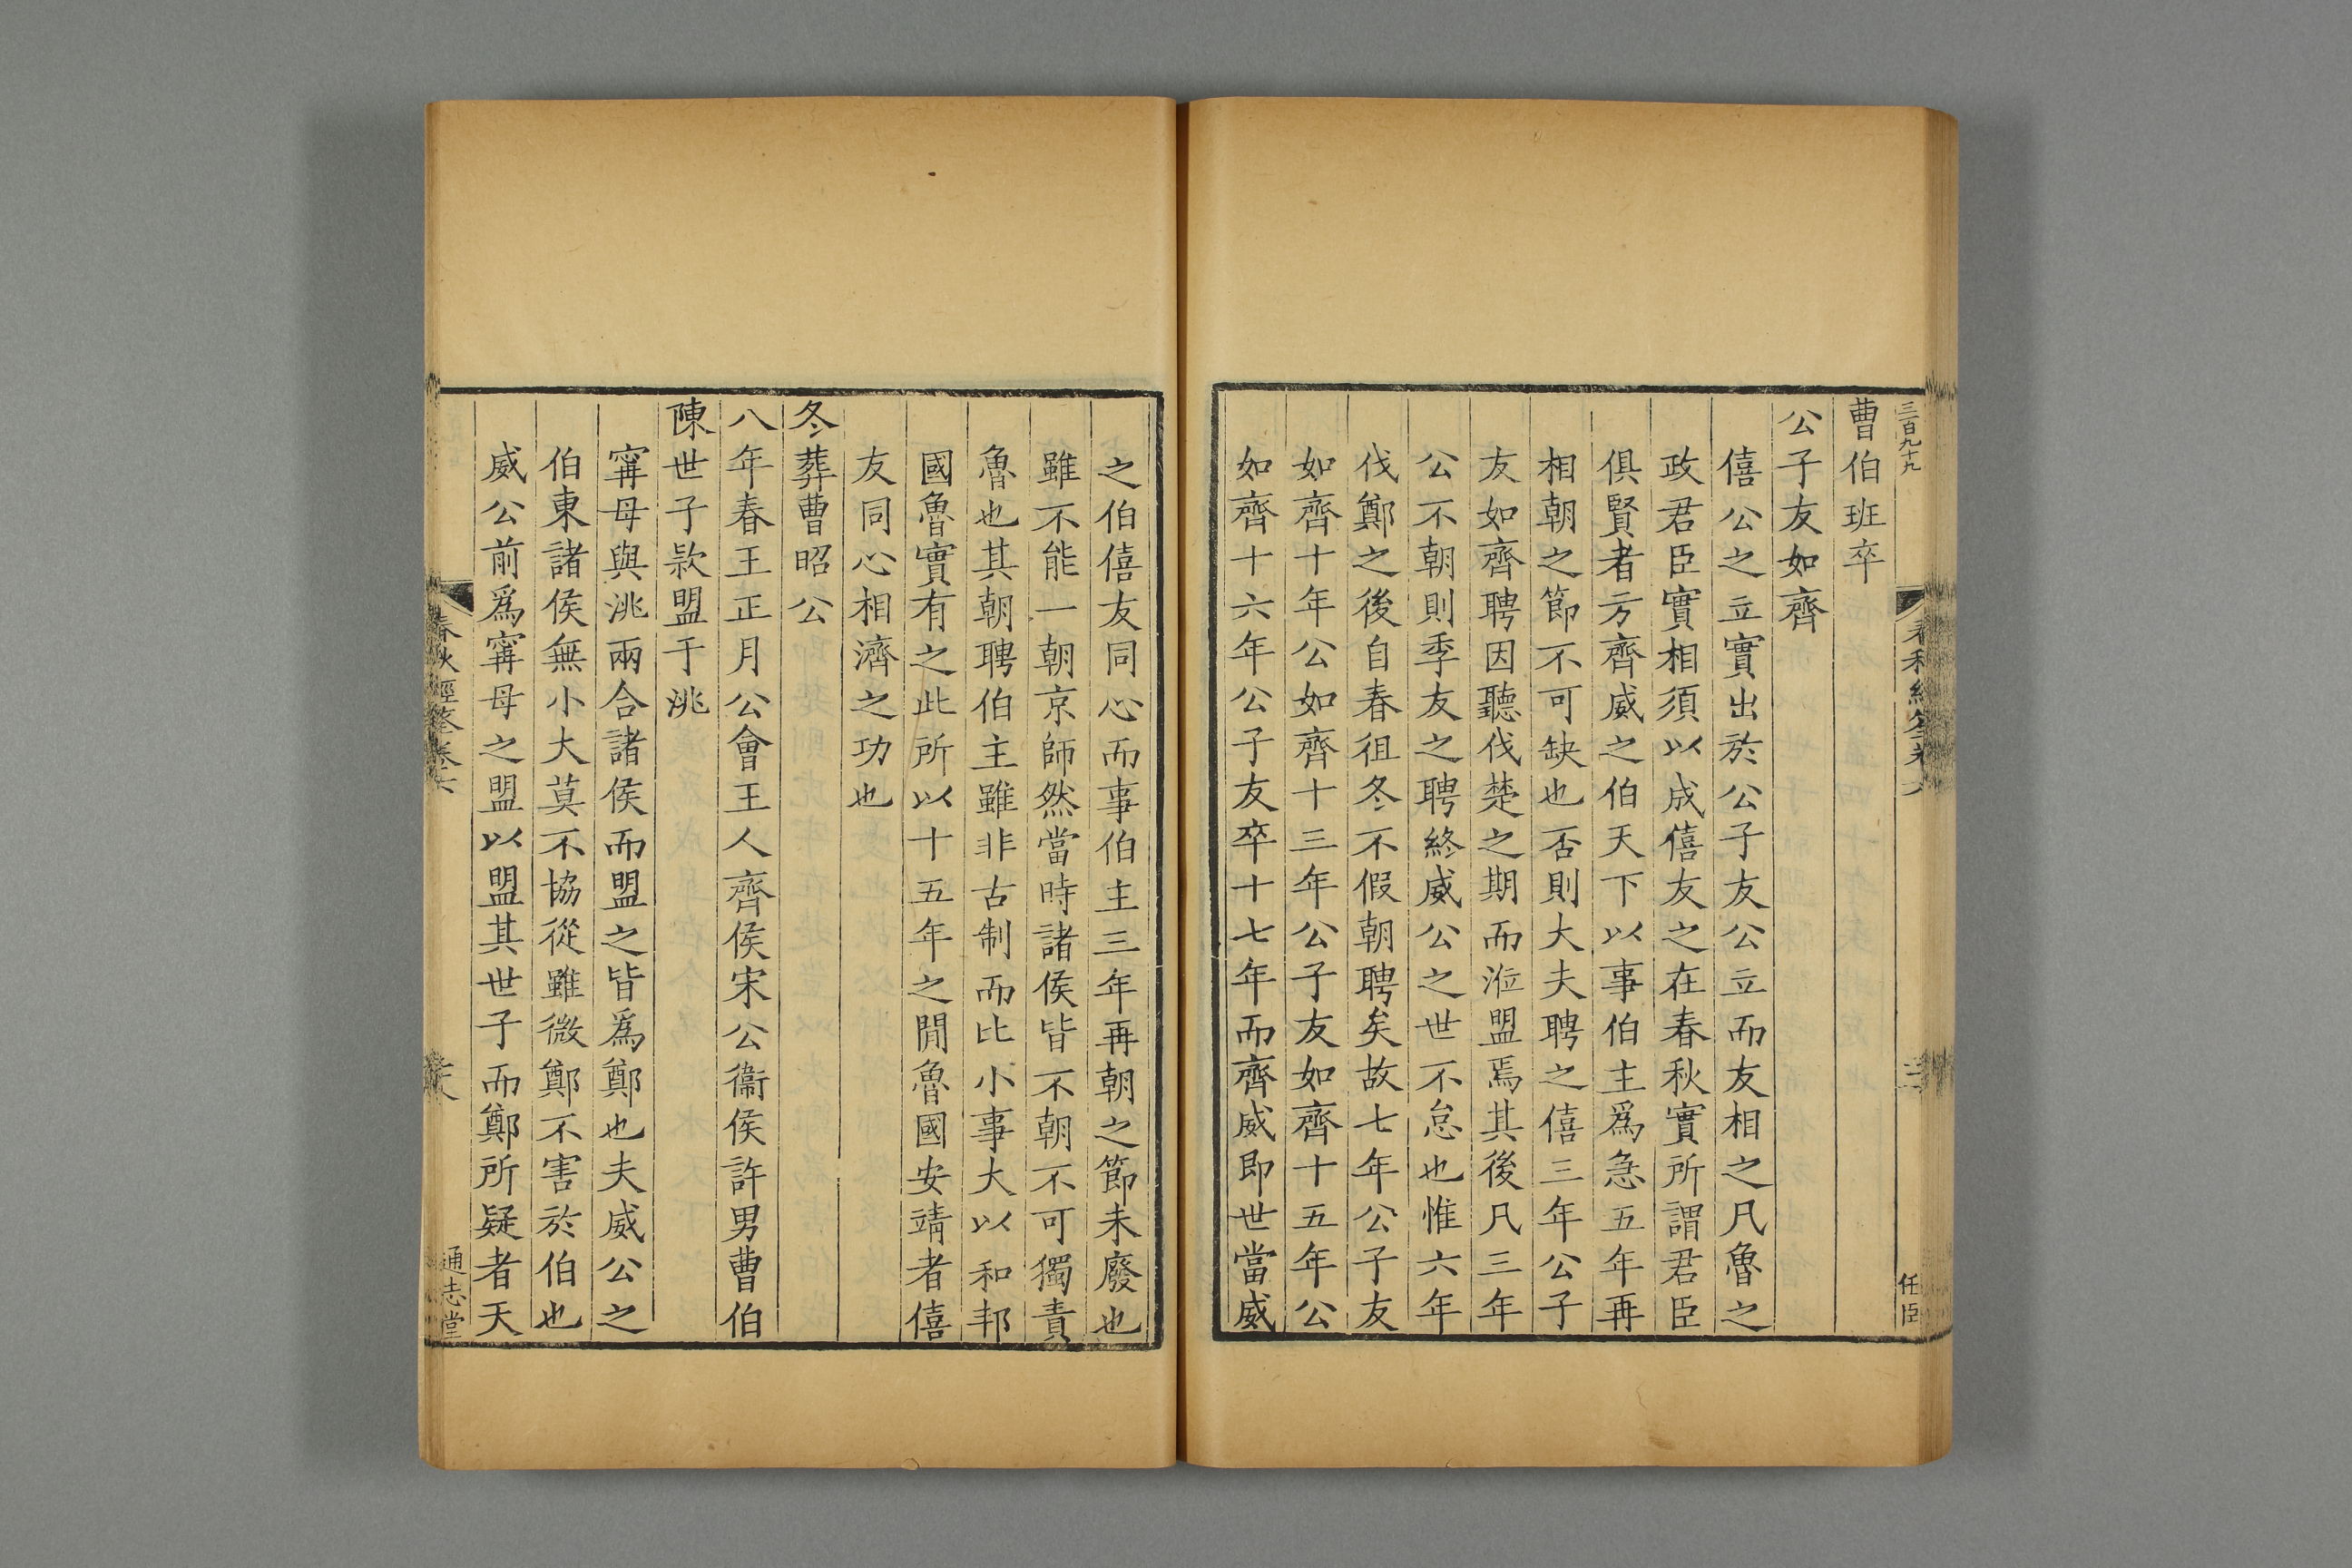 三百九十九
任臣
曹伯班卒
公子友如齊
僖公之立實出於公子友公立而友相之凡魯之
政君臣實相須以成僖友之在春秋實所謂君臣
俱賢者方齊威之伯天下以事伯主爲急五年再
相朝之節不可缺也否則大夫聘之僖三年公子
友如齊聘因聽伐楚之期而涖盟焉其後凡三年
公不朝則季友之聘終威公之世不怠也惟六年
伐鄭之後自春徂冬不假朝聘矣故七年公子友
如齊十年公如齊十三年公子友如齊十五年公
如齊十六年公子友卒十七年而齊威即世當威
之伯僖友同心而事伯主三年再朝之節未廢也
雖不能一朝京師然當時諸侯皆不朝不可獨責
魯也其朝聘伯主雖非古制而比小事大以和邦
國魯實有之此所以十五年之閒魯國安靖者僖
友同心相濟之功也
冬葬曹昭公
八年春王正月公會王人齊侯宋公衞侯許男曹伯
陳世子款盟于洮
甯母與洮兩合諸侯而盟之皆爲鄭也夫威公之
伯東諸侯無小大莫不協從雖微鄭不害於伯也
威公前爲甯母之盟以盟其世子而鄭所疑者天
春秋經筌卷六
通志堂